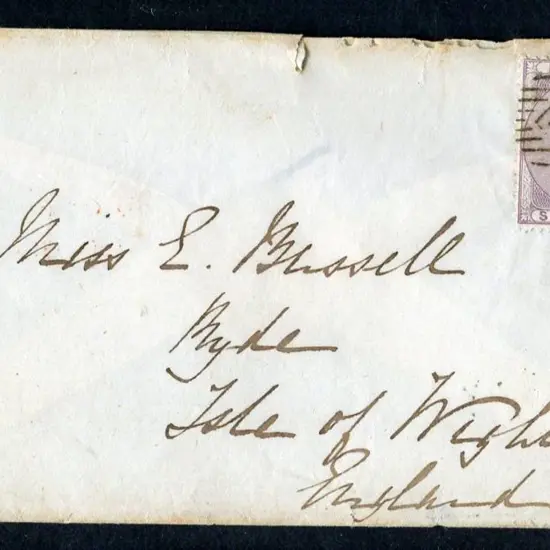 Miss E. Bussell
Ryde
Isle of Wigh
England
S